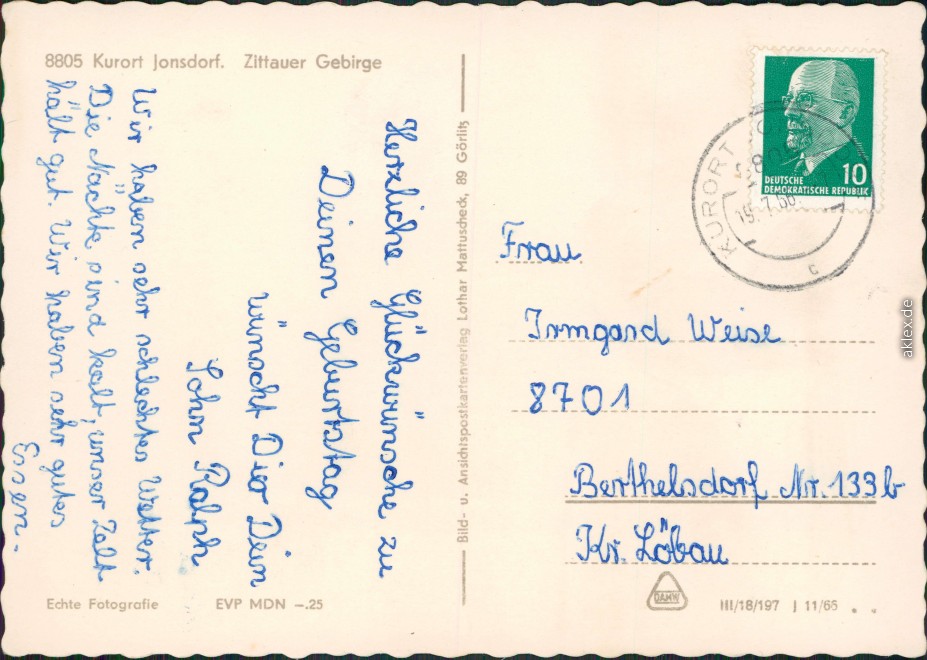 8805 Kurort Jonsdorf. Zittauer Gebirge
Herzliche Glückwünsche zu
Deinen Geburtstag
wünscht Dier Dein
Sohn Ralph
Wir haben sehr schlechtes Wetter.
Die Nächte sind kalt, unser Zelt
hält gut. Wir haben sehr gutes
Essen.
Echte Fotografie EVP MDN –.25
Bild- u. Ansichtspostkartenverlag Lothar Mattuscheck, 89 Görlitz
10
DEUTSCHE
DEMOKRATISCHE REPUBLIK
KURORT
c
Frau
Irmgard Weise
8701
Berthelsdorf Nr. 133b
Kr. Löbau
DAMW
III/18/197 J 11/66
aklex.de